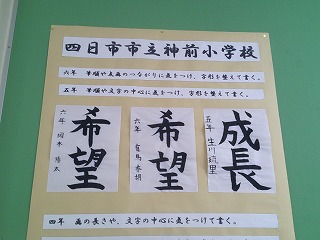 四日市市立神前小学校
六年 筆順や点画のつながりに気をつけ、字形を整えて書く。
五年 筆順や文字の中心に気をつけ、字形を整えて書く。
成長
五年 生川
希望
六年 有馬
希望
六年
四年 画の長さや、文字の中心に気をつけて書く。